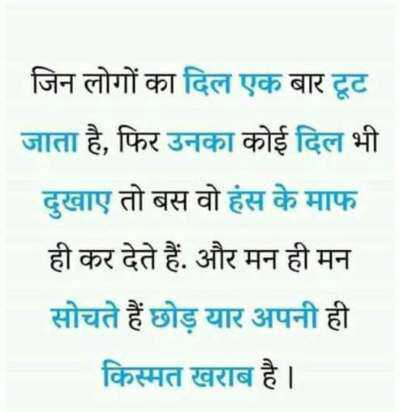 जिन लोगों का दिल एक बार टूट
जाता है, फिर उनका कोई दिल भी
दुखाए तो बस वो हंस के माफ
ही कर देते हैं. और मन ही मन
सोचते हैं छोड़ यार अपनी ही
किस्मत खराब है।